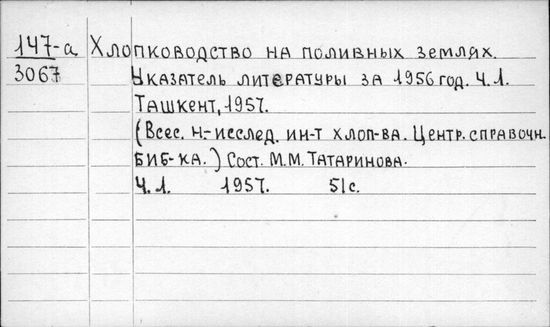 147-а Хлопководство на поливных землях.
3067 Указатель литературы за 1956 год. Ч.1.
Ташкент, 1957.
(Всес. н-исслед. ин-т хлоп-ва. Центр. справочн.
биб-ка.) Сост. М.М. Татаринова.
Ч.1. 1957. 51с.